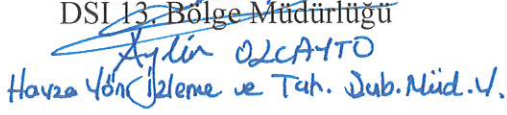 DSİ 13. Bölge Müdürlüğü
Aylin OLCAYTO
Havza Yön. İzleme ve Tah. Şub. Müd. V.